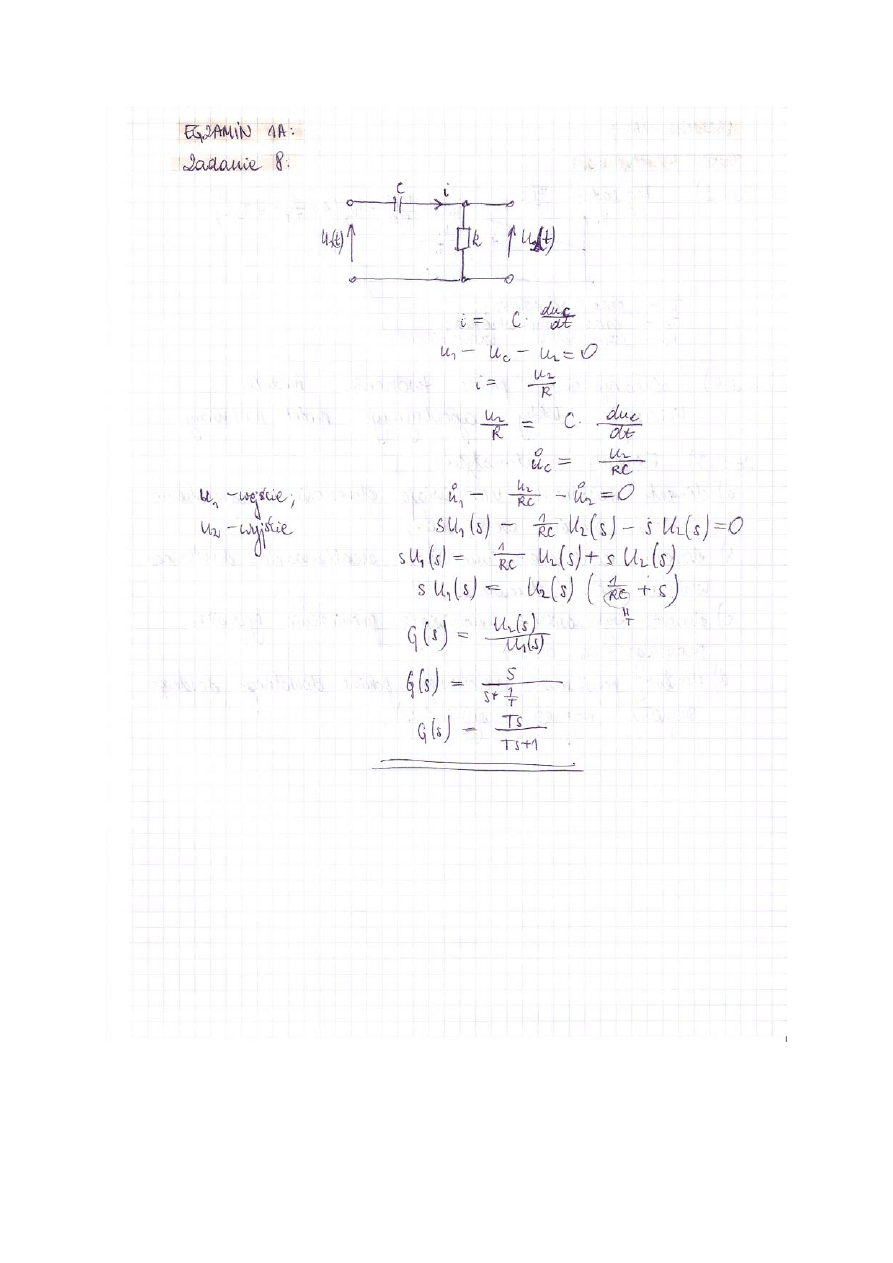 EGZAMIN 1A:
Zadanie 8:
C i
U₁(t) R U₂(t)
i = C · duc/dt
u₁ - uc - u₂ = 0
i = u₂/R
u₂/R = C · duc/dt
u̇c = u₂/RC
u₁ - wejście; u̇₁ - u₂/RC - u̇₂ = 0
u₂ - wyjście sU₁(s) - 1/RC U₂(s) - sU₂(s) = 0
sU₁(s) = 1/RC U₂(s) + sU₂(s)
sU₁(s) = U₂(s) (1/RC + s)
1/T
G(s) = U₂(s)/U₁(s)
G(s) = s/(s + 1/T)
G(s) = Ts/(Ts+1)